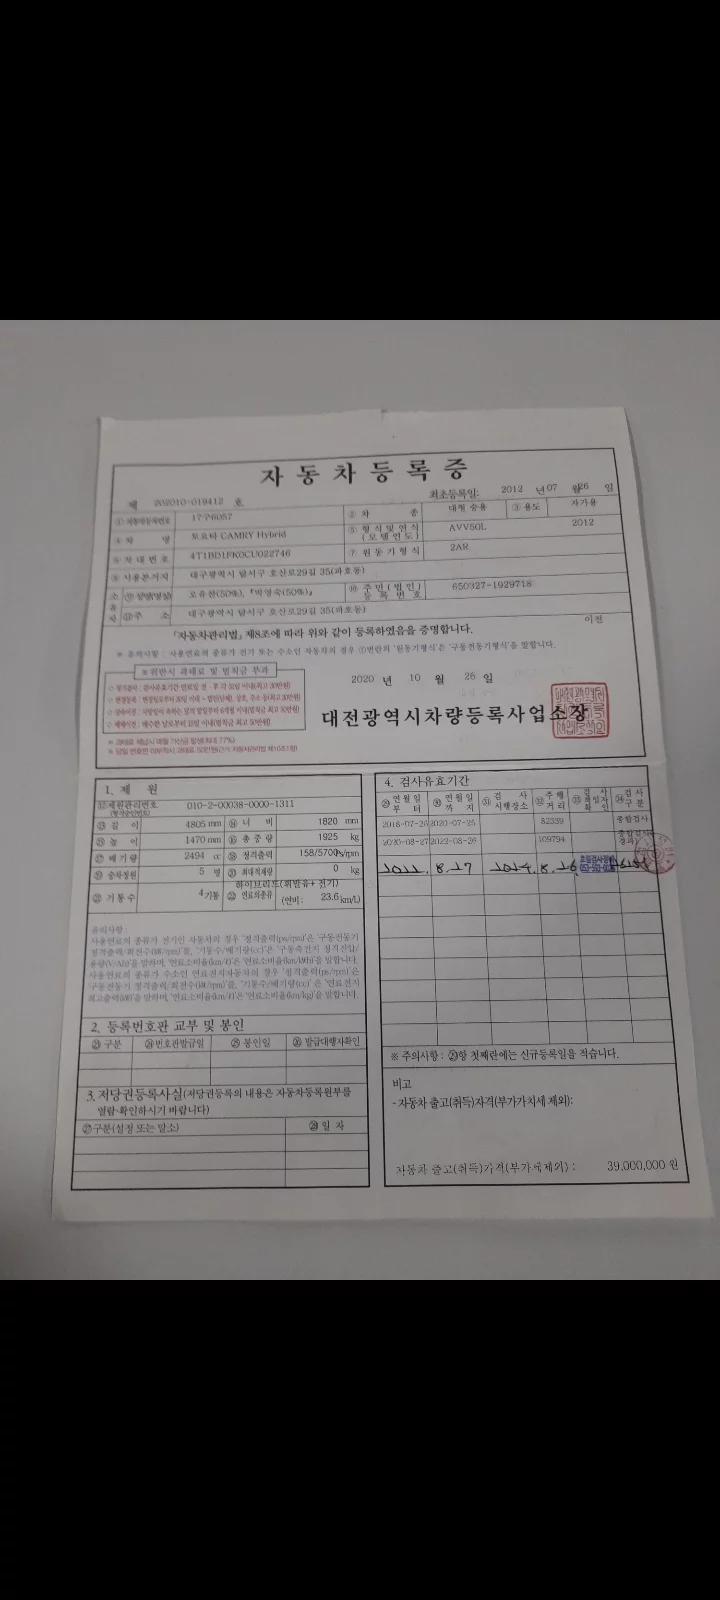 자동차등록증
제 202010-019412 호 최초등록일: 2012 년 07 월 26 일
① 자동차등록번호 17구6057 ② 차 종 대형 승용 ③ 용도 자가용
④ 차 명 토요타 CAMRY Hybrid ⑤ 형식및연식 (모델연도) AVV50L 2012
⑥ 차대번호 4T1BD1FK0CU022746 ⑦ 원동기형식 2AR
⑧ 사용본거지 대구광역시 달서구 호산로29길 35(파호동)
소유자 ⑨ 성명(명칭) 오유찬(50%), 『박영숙(50%)』 ⑩ 주민(법인)등록번호 650327-1929718
⑪ 주 소 대구광역시 달서구 호산로29길 35(파호동) 이전
「자동차관리법」 제8조에 따라 위와 같이 등록하였음을 증명합니다.
※ 유의사항 : 사용연료의 종류가 전기 또는 수소인 자동차의 경우 ⑦번란의 '원동기형식'은 '구동전동기형식'을 말합니다.
※위반시 과태료 및 범칙금 부과
2020 년 10 월 26 일
대전광역시차량등록사업소장
1. 제 원
⑫제원관리번호 (형식승인번호) 010-2-00038-0000-1311
⑬ 길 이 4805 mm ⑭ 너 비 1820 mm
⑮ 높 이 1470 mm ⑯ 총 중 량 1925 kg
⑰ 배 기 량 2494 cc ⑱ 정격출력 158/5700 ps/rpm
⑲ 승차정원 5 명 ⑳ 최대적재량 0 kg
㉑ 기 통 수 4 기통 ㉒ 연료의종류 하이브리드(휘발유+전기) (연비: 23.6 km/L)
유의사항:
사용연료의 종류가 전기인 자동차의 경우 '정격출력(ps/rpm)'은 '구동전동기
정격출력/회전수(kW/rpm)'를, '기통수/배기량(cc)'은 '구동축전지 정격전압/
용량(V/Ah)'을 말하며, '연료소비율(km/ℓ)'은 '연료소비율(km/kWh)'을 말합니다.
사용연료의 종류가 수소인 연료전지자동차의 경우 '정격출력(ps/rpm)'은
'구동전동기 정격출력/회전수(kW/rpm)'를, '기통수/배기량(cc)'은 '연료전지
최고출력(kW)'을 말하며, '연료소비율(km/ℓ)'은 '연료소비율(km/kg)'을 말합니다.
2. 등록번호판 교부 및 봉인
㉓ 구분 ㉔번호판발급일 ㉕ 봉인일 ㉖ 발급대행자확인
3. 저당권등록사실(저당권등록의 내용은 자동차등록원부를
열람·확인하시기 바랍니다)
㉗구분(설정 또는 말소) ㉘ 일 자
4. 검사유효기간
㉙ 연월일부터 ㉚ 연월일까지 ㉛ 검사시행장소 ㉜ 주행거리 ㉝ 검사책임자확인 ㉞ 검사구분
2018-07-26 2020-07-25 82339 종합검사
2020-08-27 2022-08-26 109794 종합검사
2022. 8. 27 2024. 8. 26
※ 주의사항 : ㉙항 첫째란에는 신규등록일을 적습니다.
비고
- 자동차 출고(취득)자격(부가가치세 제외):
자동차 출고(취득)가격(부가세제외) : 39,000,000 원